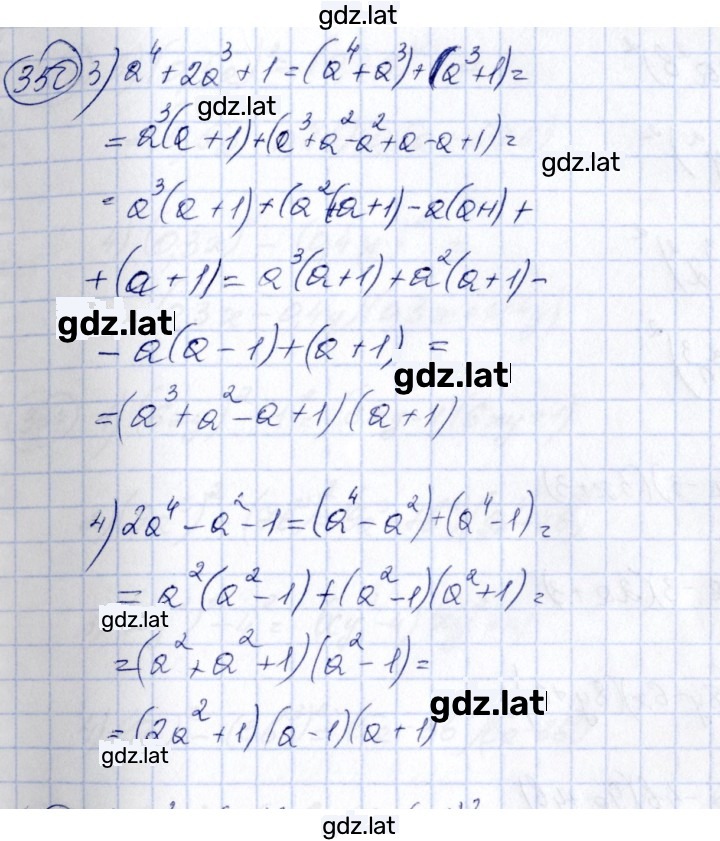 gdz.lat
350 3) a⁴ + 2a³ + 1 = (a⁴ + a³) + (a³ + 1) =
gdz.lat
= a³(a + 1) + (a³ + a² - a² + a - a + 1) =
gdz.lat
= a³(a + 1) + (a²(a + 1) - a(a+1) +
+ (a + 1) = a³(a + 1) + a²(a + 1) -
gdz.lat
- a(a - 1) + (a + 1) =
gdz.lat
= (a³ + a² - a + 1)(a + 1)
4) 2a⁴ - a² - 1 = (a⁴ - a²) + (a⁴ - 1) =
= a²(a² - 1) + (a² - 1)(a² + 1) =
gdz.lat
= (a² + a² + 1)(a² - 1) =
gdz.lat
= (2a² + 1)(a - 1)(a + 1)
gdz.lat
gdz.lat